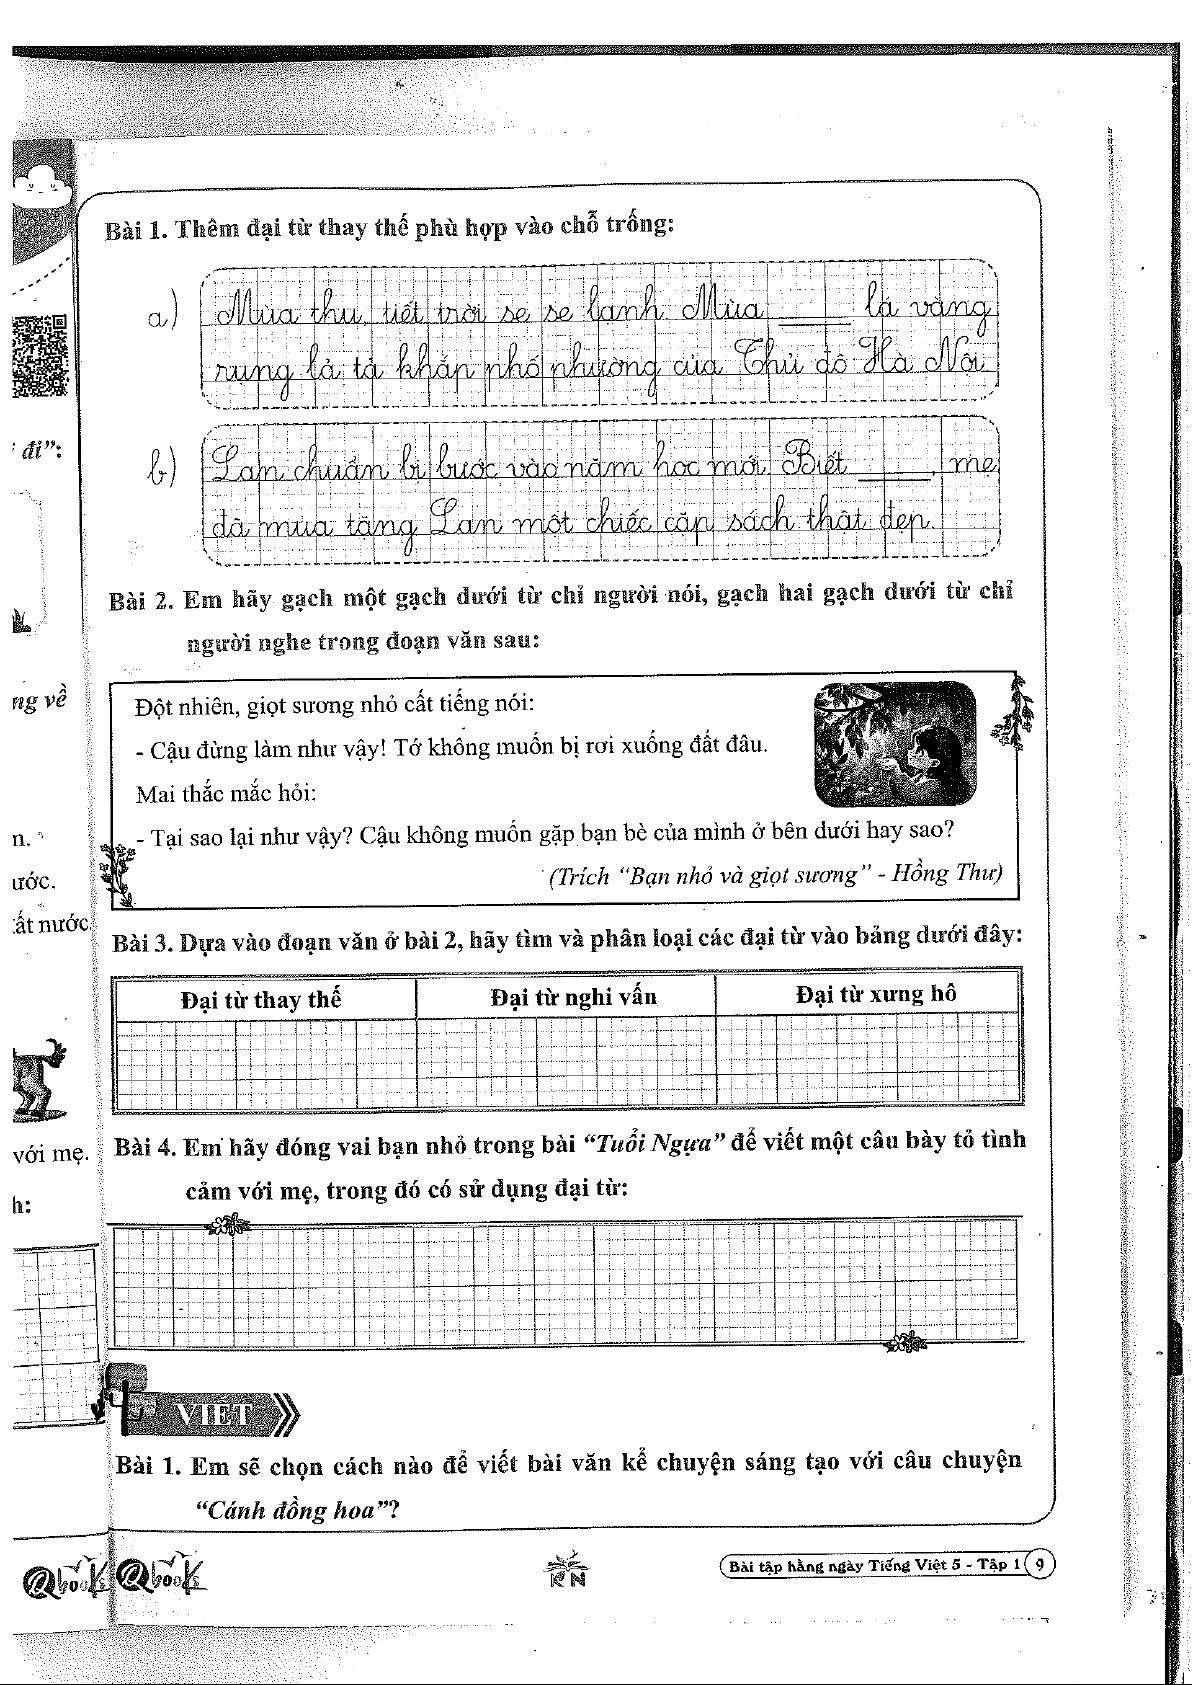 Bài 1. Thêm đại từ thay thế phù hợp vào chỗ trống:
a) Mùa thu, tiết trời se se lạnh. Mùa ____ lá vàng
rụng lả tả khắp phố phường của Thủ đô Hà Nội.
b) Lan chuẩn bị bước vào năm học mới. Biết ____, mẹ
đã mua tặng Lan một chiếc cặp sách thật đẹp.
đi”:
Bài 2. Em hãy gạch một gạch dưới từ chỉ người nói, gạch hai gạch dưới từ chỉ
người nghe trong đoạn văn sau:
ng về
Đột nhiên, giọt sương nhỏ cất tiếng nói:
- Cậu đừng làm như vậy! Tớ không muốn bị rơi xuống đất đâu.
Mai thắc mắc hỏi:
n.
- Tại sao lại như vậy? Cậu không muốn gặp bạn bè của mình ở bên dưới hay sao?
ước.
(Trích “Bạn nhỏ và giọt sương” - Hồng Thư)
ất nước
Bài 3. Dựa vào đoạn văn ở bài 2, hãy tìm và phân loại các đại từ vào bảng dưới đây:
Đại từ thay thế
Đại từ nghi vấn
Đại từ xưng hô
với mẹ.
Bài 4. Em hãy đóng vai bạn nhỏ trong bài “Tuổi Ngựa” để viết một câu bày tỏ tình
cảm với mẹ, trong đó có sử dụng đại từ:
h:
VIẾT
Bài 1. Em sẽ chọn cách nào để viết bài văn kể chuyện sáng tạo với câu chuyện
“Cánh đồng hoa”?
Qbooks
Qbooks
KN
Bài tập hằng ngày Tiếng Việt 5 - Tập 1
9